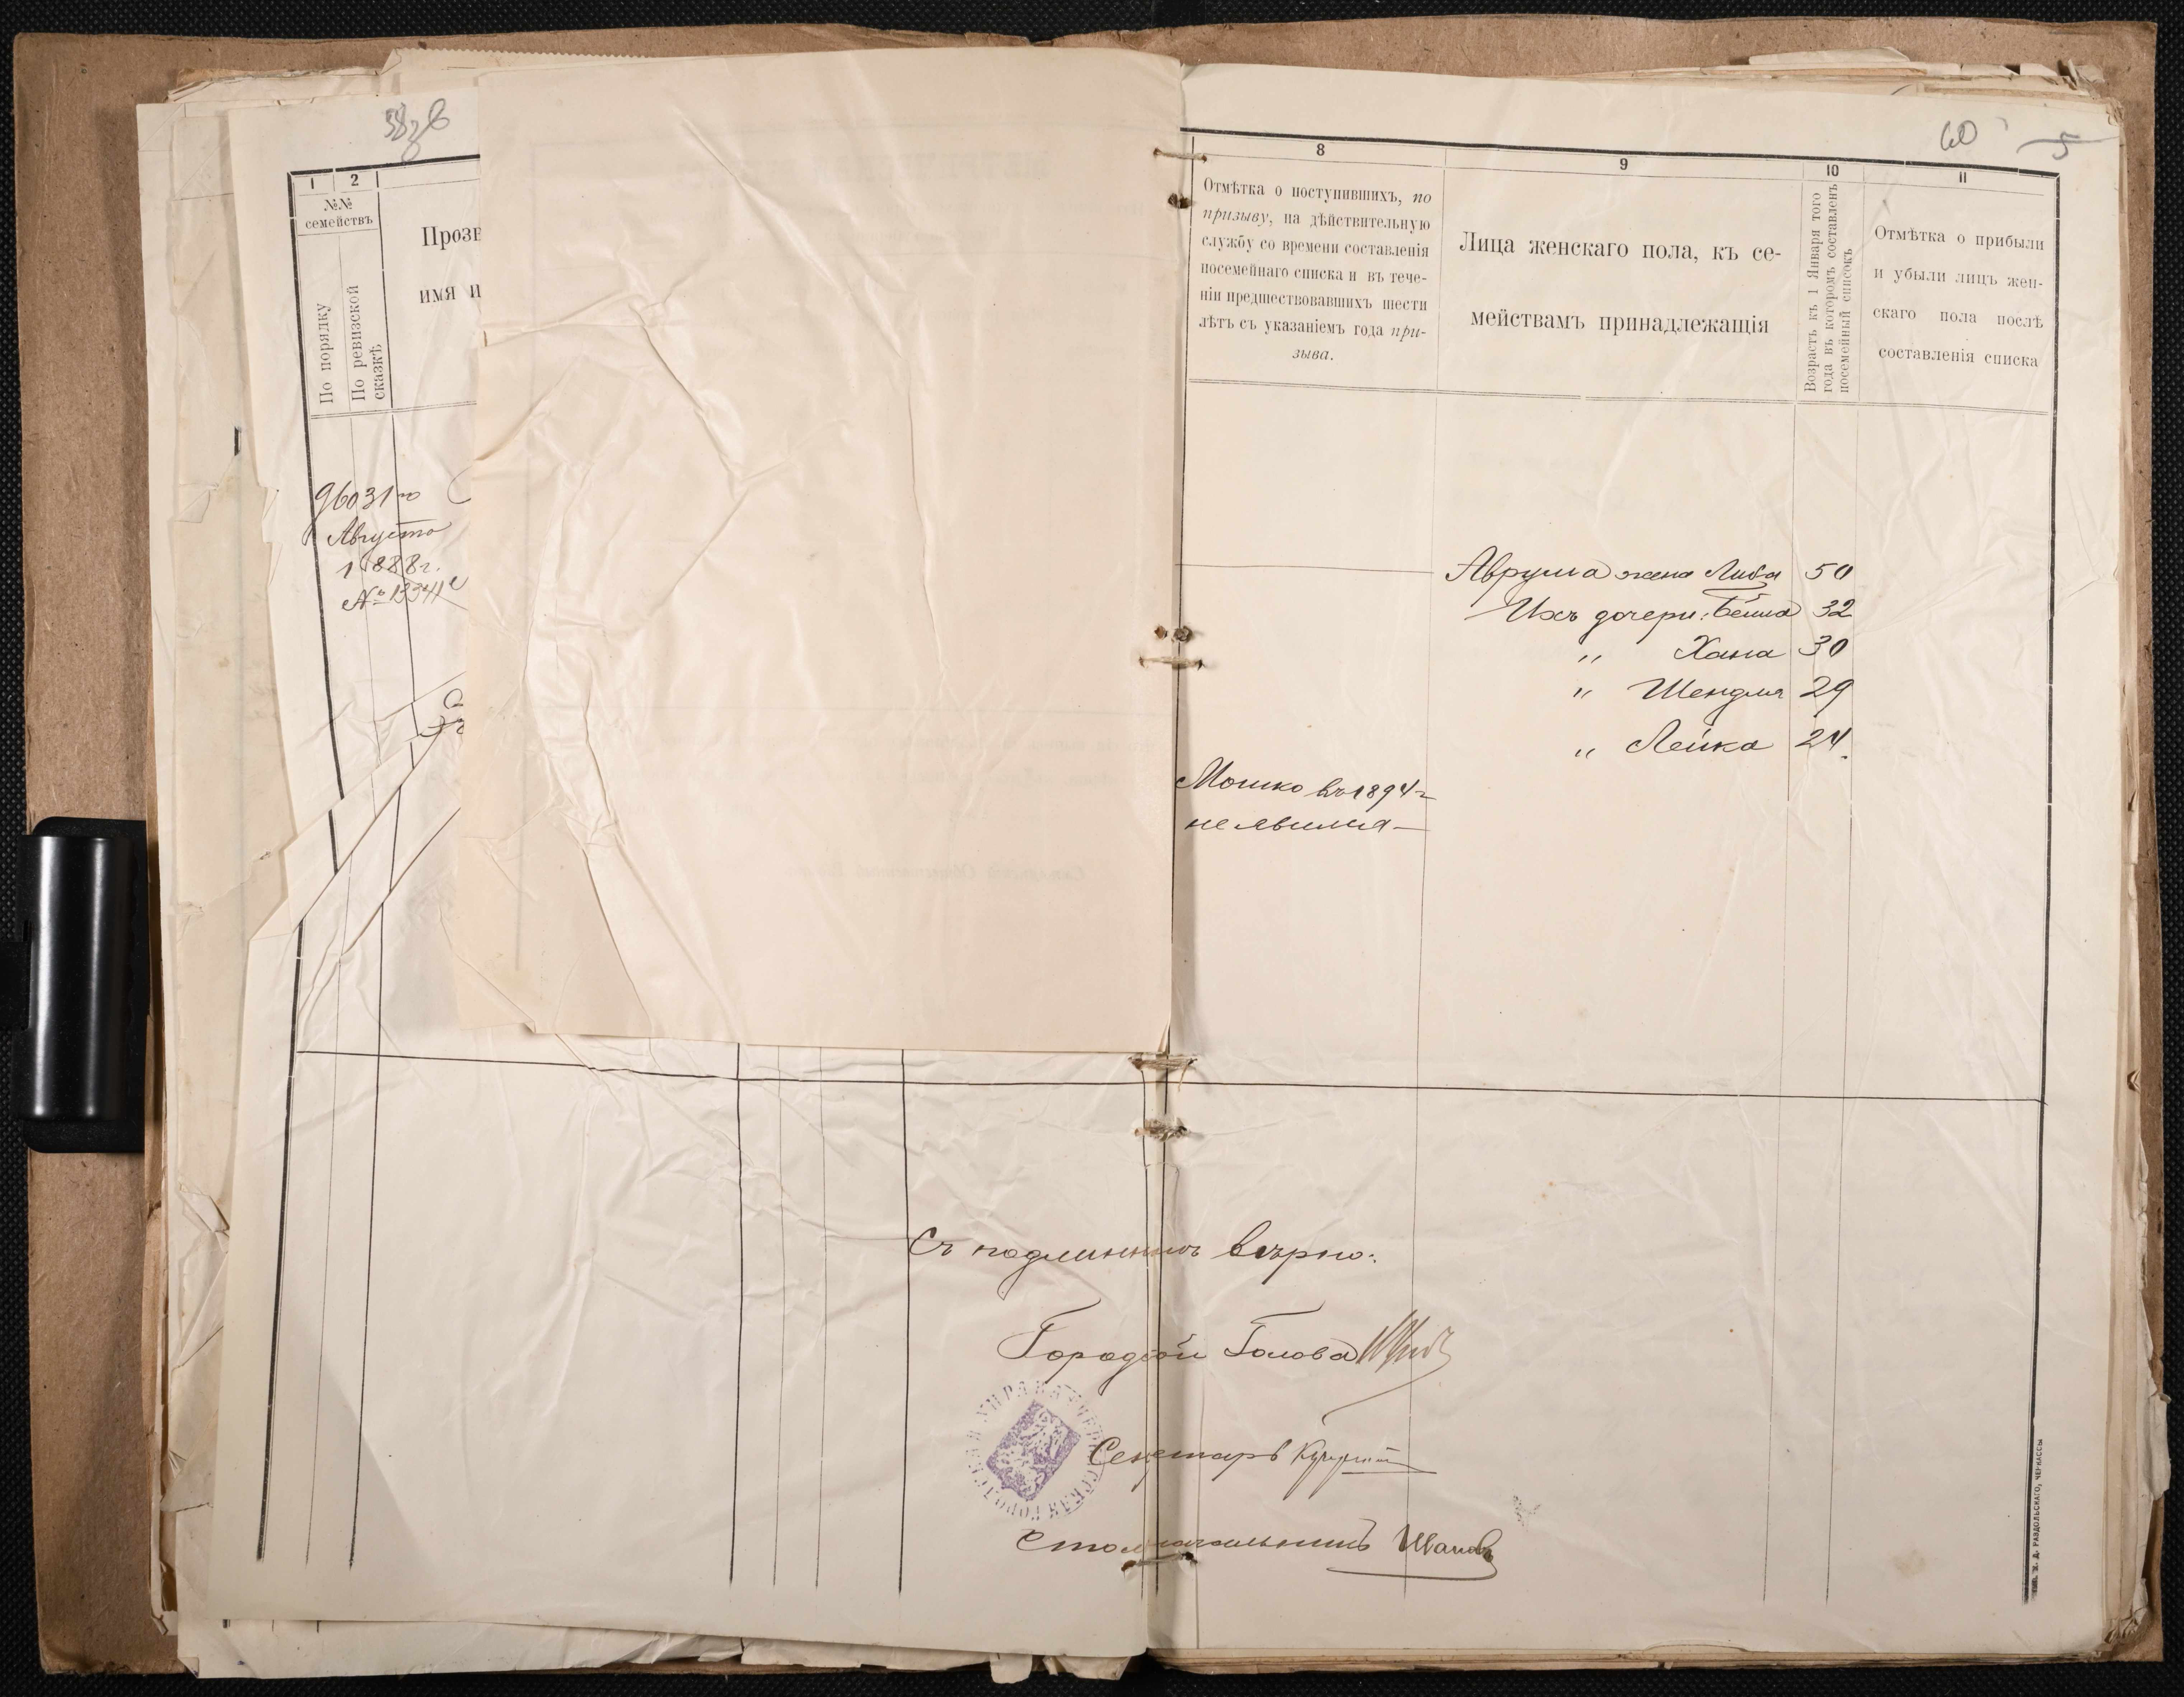 58 зв
1
2
№№
семействъ
По порядку
По ревизской
сказкѣ
Прозв
имя и
9603 1го
Августа
1888г.
№ 13341
60
5
8
Отмѣтка о поступившихъ, по
призыву, на дѣйствительную
службу со времени составленія
посемейнаго списка и въ тече-
ніи предшествовавшихъ шести
лѣтъ съ указаніемъ года при-
зыва.
9
Лица женскаго пола, къ се-
мействамъ принадлежащія
10
Возрастъ къ 1 Января того
года въ которомъ составленъ
посемейный списокъ
11
Отмѣтка о прибыли
и убыли лицъ жен-
скаго пола послѣ
составленія списка
Аврума жена Либа 50
Ихъ дочери: Бейла 32
" Хана 30
" Шендля 29
" Лейка 24.
Мошко въ 1894 г
не явился
Съ подлиннымъ вѣрно:
Городской Голова
Секретарь
Столоначальникъ Ивановъ
ЧЕРКАССКАЯ ГОРОДСКАЯ УПРАВА
Тип. Х. Д. РАЗДОЛЬСКАГО, ЧЕРКАССЫ